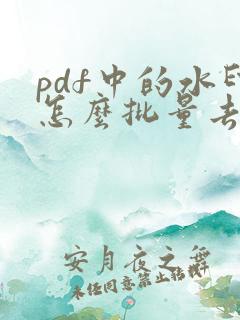 pdf中的水
怎麼批量去
安月夜之舞
未任同意禁止转载